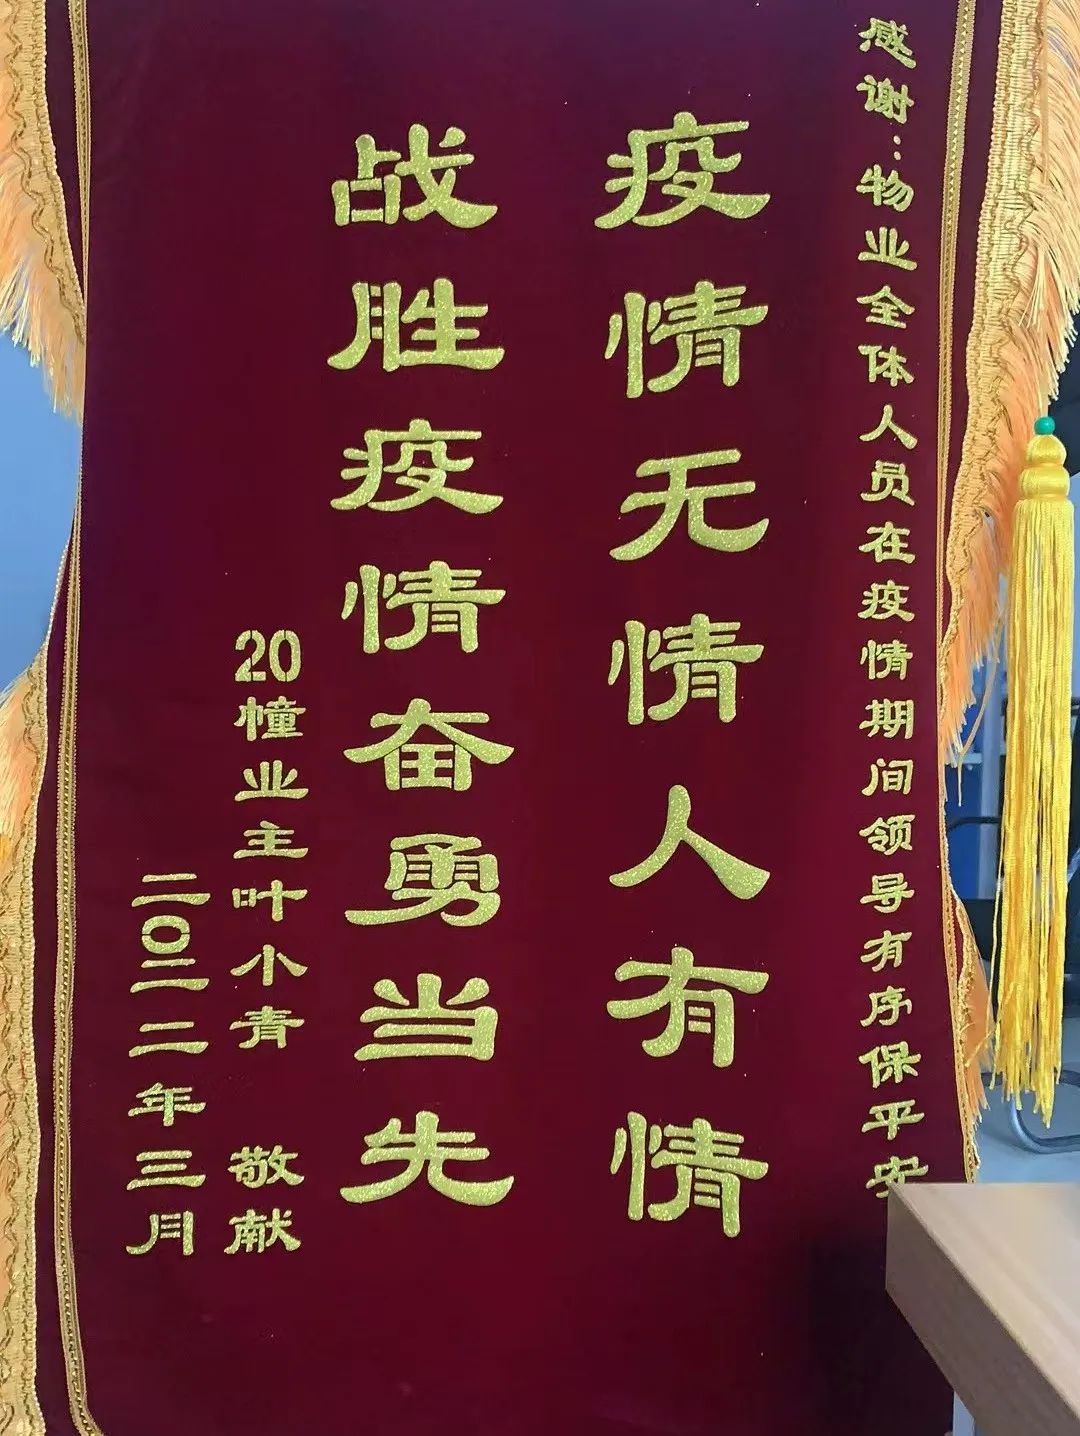 感谢：物业全体人员在疫情期间领导有序保平安
疫情无情人有情
战胜疫情奋勇当先
20幢业主叶小青 敬献
二〇二二年三月